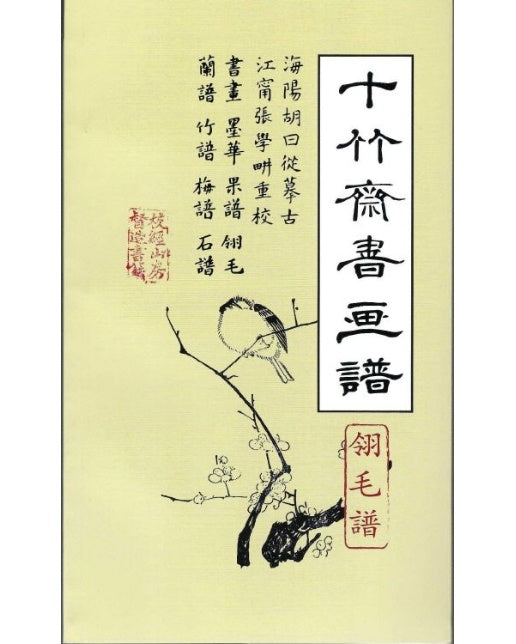 十竹齋書画譜
翎毛譜
海陽胡曰從摹古
江甯張學畊重校
書畫 墨華 果譜 翎毛
蘭譜 竹譜 梅譜 石譜
校經山房
督造書籍